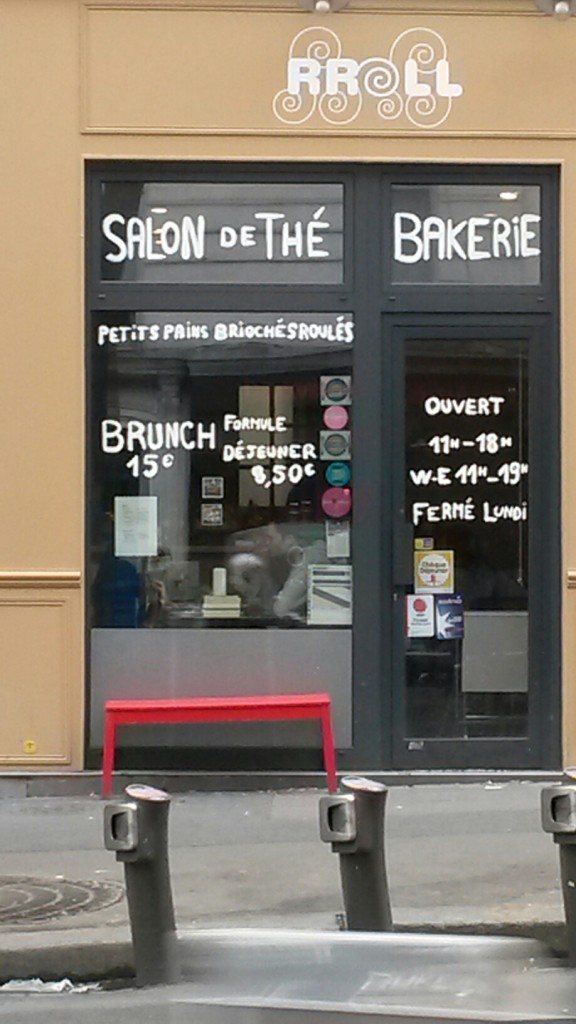 RROLL
SALON DE THÉ
BAKERIE
PETITS PAINS BRIOCHÉS ROULÉS
BRUNCH
15€
FORMULE
DÉJEUNER
8,50€
OUVERT
11H-18H
W-E 11H-19H
FERMÉ LUNDI
Chèque
Déjeuner